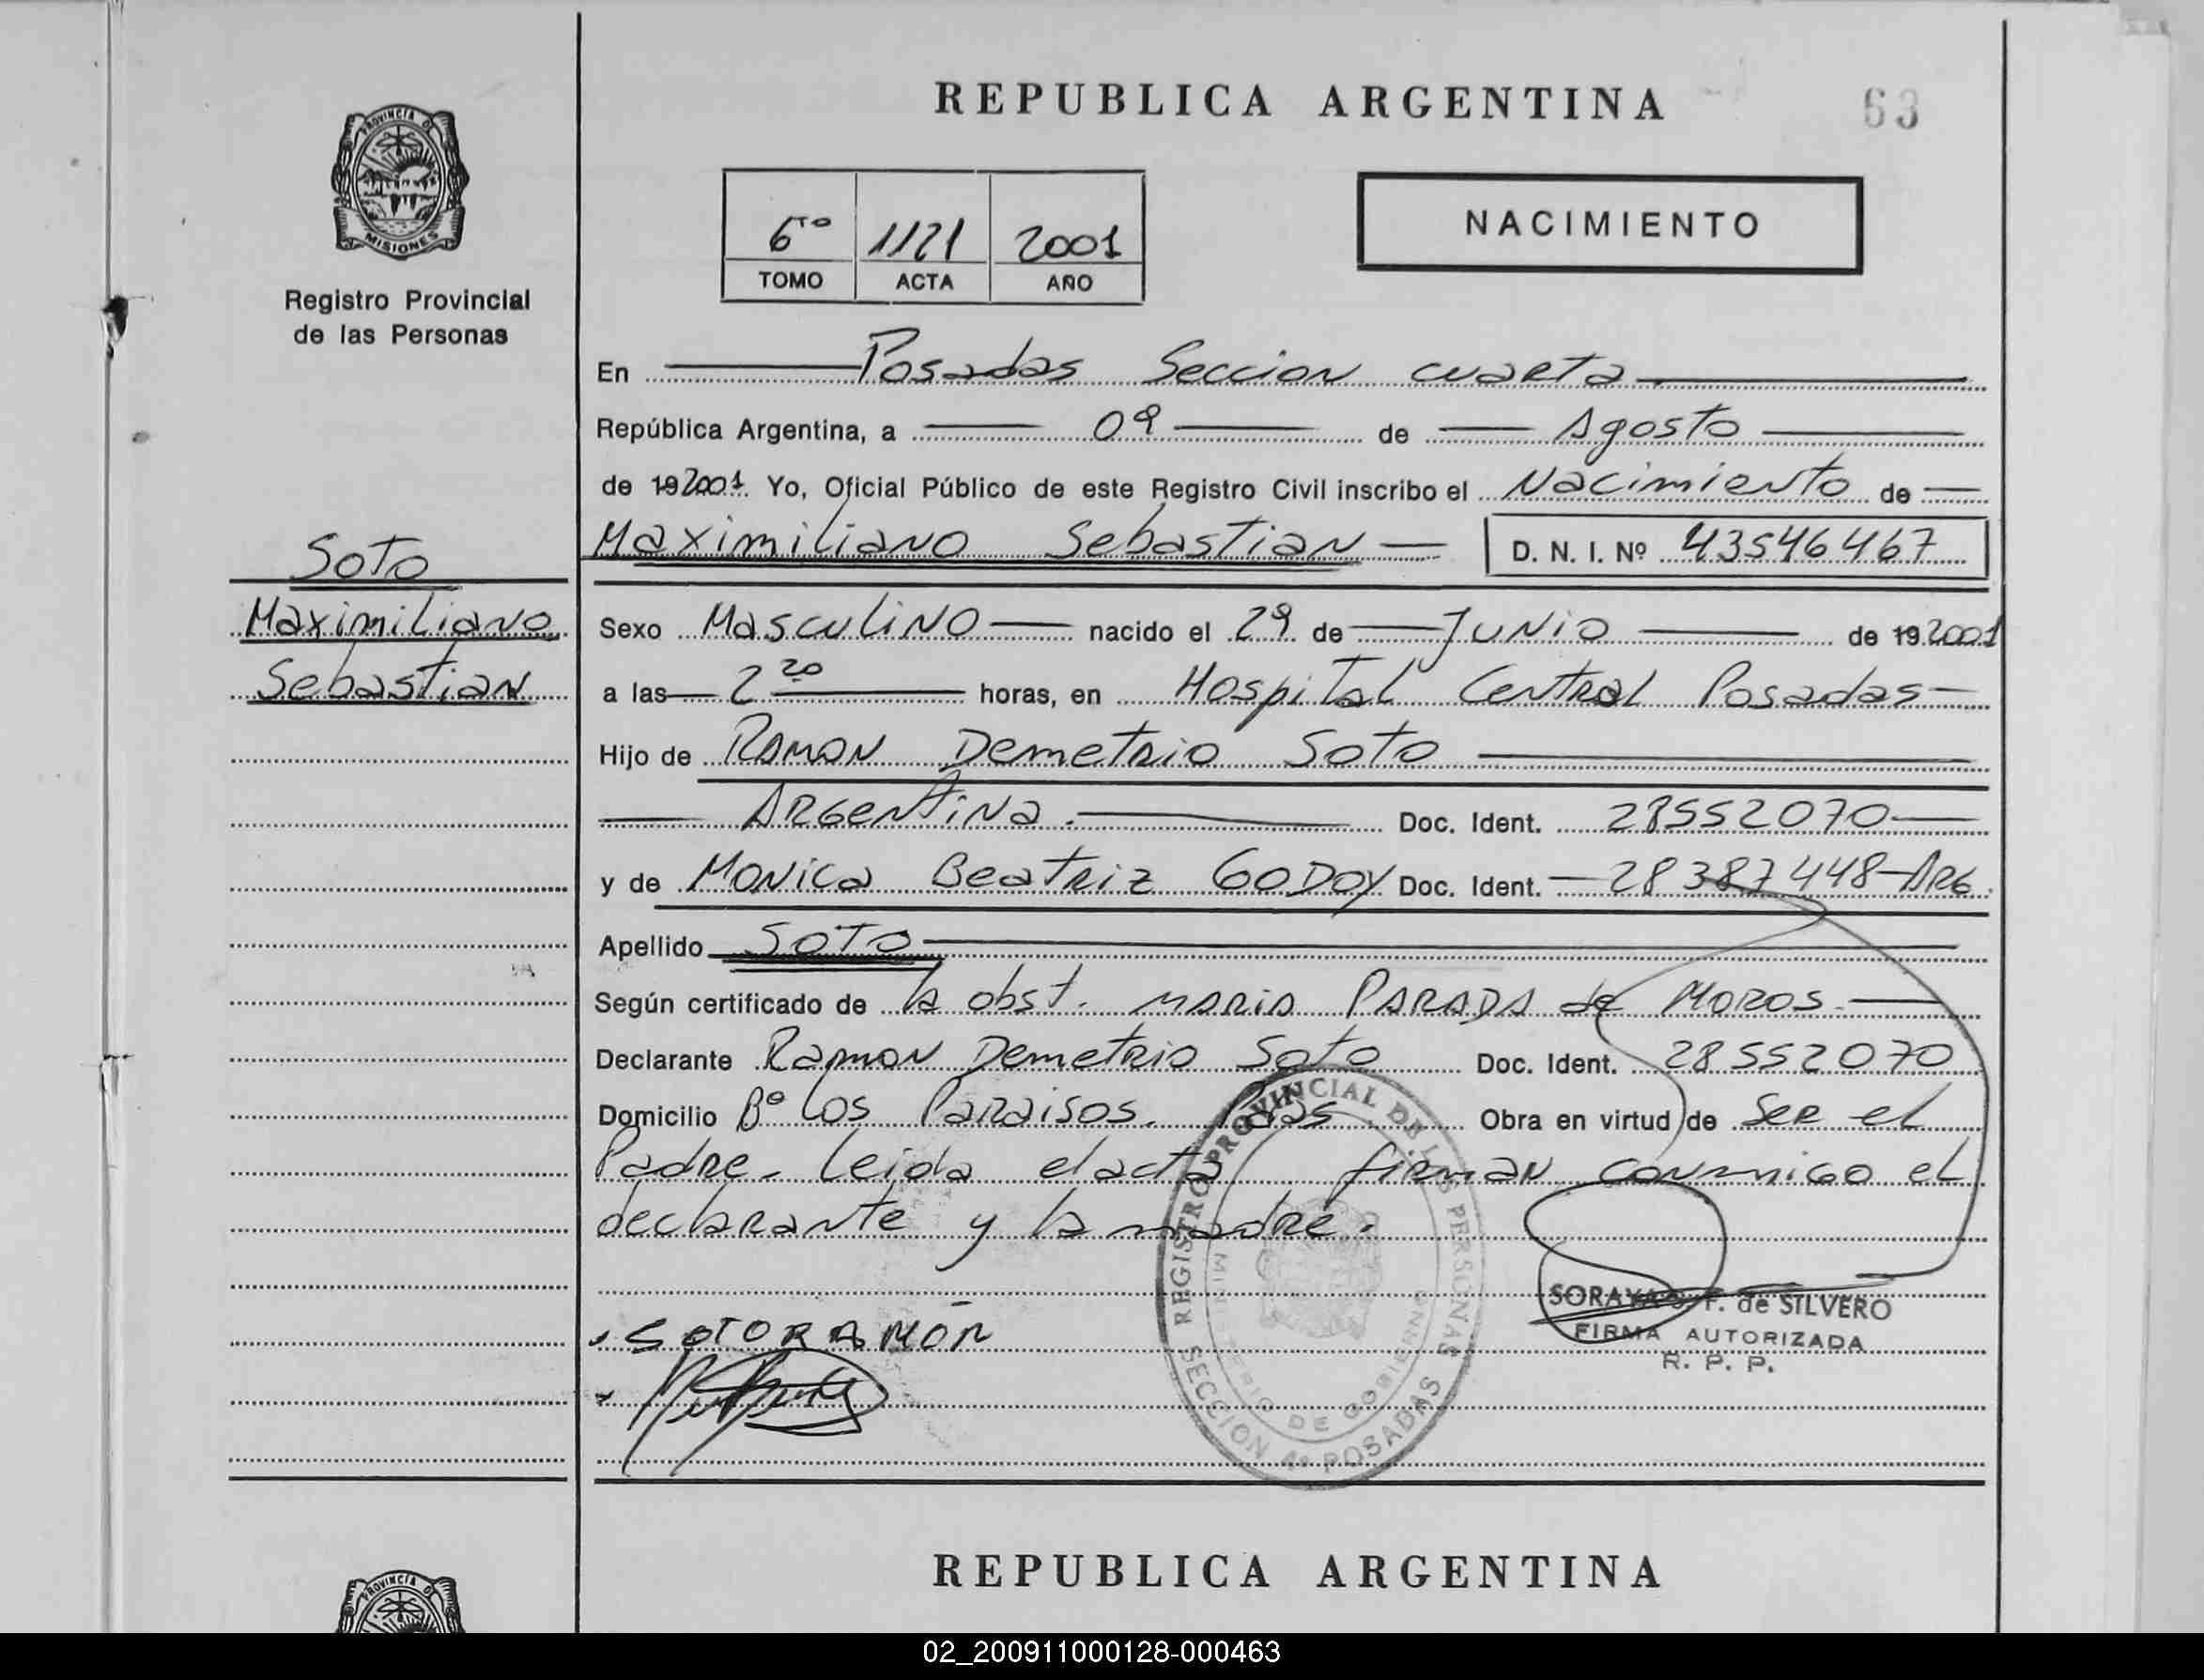 REPUBLICA ARGENTINA
63
PROVINCIA DE
MISIONES
Registro Provincial
de las Personas
6to 1121 2001
TOMO ACTA AÑO
NACIMIENTO
En Posadas Seccion cuarta
República Argentina, a 09 de Agosto
de 19 2001. Yo, Oficial Público de este Registro Civil inscribo el Nacimiento de
Maximiliano Sebastian D. N. I. Nº 43546467
Soto
Maximiliano
Sebastian
Sexo Masculino nacido el 29 de Junio de 19 2001
a las 2 20 horas, en Hospital Central Posadas
Hijo de Ramon Demetrio Soto
Argentina. Doc. Ident. 28552070
y de Monica Beatriz GODOY Doc. Ident. 28387448-Arg.
Apellido SOTO
Según certificado de la obst. Maria PARADA de MOROS.
Declarante Ramon Demetrio Soto Doc. Ident. 28552070
Domicilio Bº Los Paraisos. Pdas Obra en virtud de Ser el
Padre. Leida el acta firman conmigo el
declarante y la madre.
REGISTRO PROVINCIAL DE LAS PERSONAS
MINISTERIO DE GOBIERNO
SECCION 4ª POSADAS
SOTO RAMON
SORAYA de SILVERO
FIRMA AUTORIZADA
R. P. P.
REPUBLICA ARGENTINA
PROVINCIA D
02_200911000128-000463